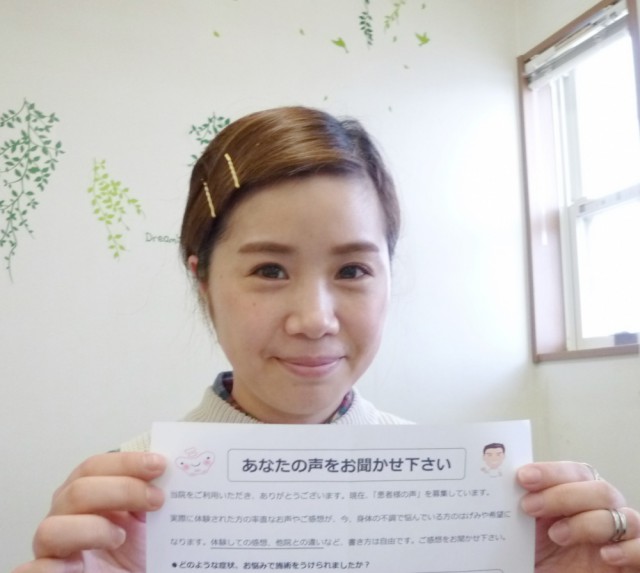 Dream
あなたの声をお聞かせ下さい
当院をご利用いただき、ありがとうございます。現在、「患者様の声」を募集しています。
実際に体験された方の率直なお声やご感想が、今、身体の不調で悩んでいる方のはげみや希望に
なります。体験しての感想、他院との違いなど、書き方は自由です。ご感想をお聞かせ下さい。
●どのような症状、お悩みで施術をうけられましたか？